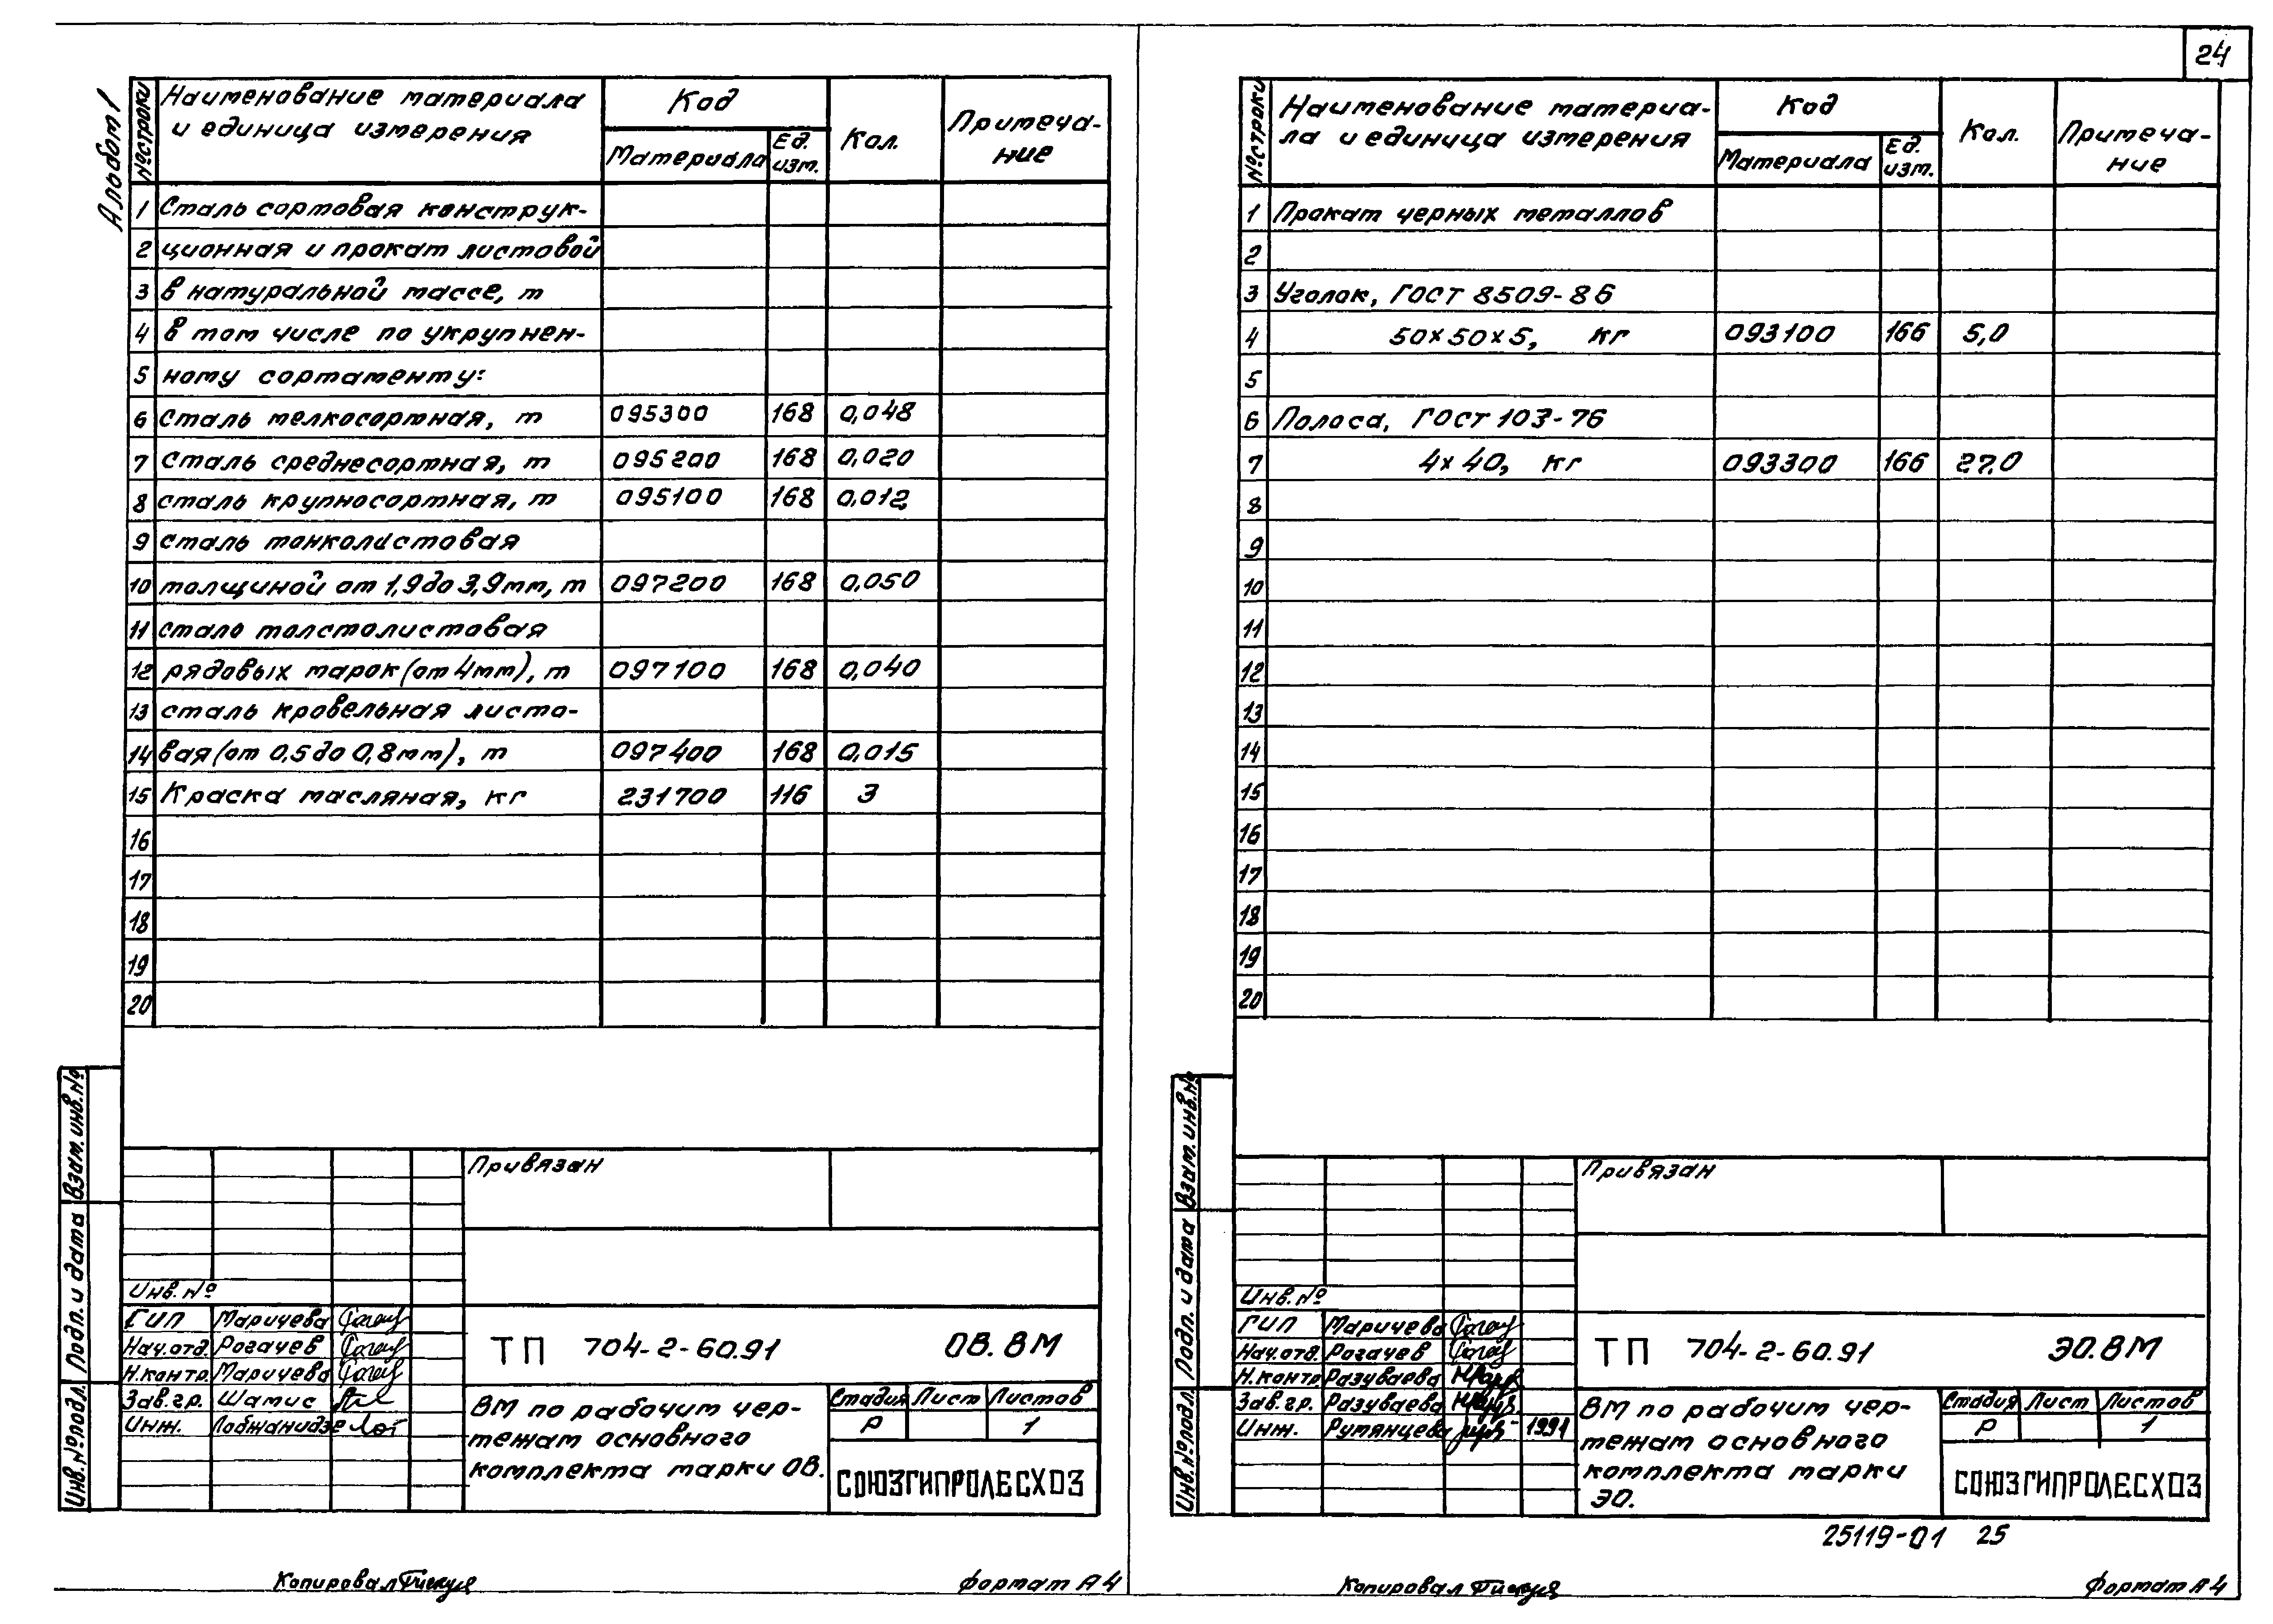 24
Альбом 1
№ строки
Наименование материала
и единица измерения
Код
Материала
Ед.
изм.
Кол.
Примеча-
ние
1 Сталь сортовая конструк-
2 ционная и прокат листовой
3 в натуральной массе, т
4 в том числе по укрупнен-
5 ному сортаменту:
6 Сталь мелкосортная, т 095300 168 0,048
7 Сталь среднесортная, т 095200 168 0,020
8 сталь крупносортная, т 095100 168 0,012
9 сталь тонколистовая
10 толщиной от 1,9 до 3,9мм, т 097200 168 0,050
11 сталь толстолистовая
12 рядовых марок (от 4мм), т 097100 168 0,040
13 сталь кровельная листо-
14 вая (от 0,5 до 0,8мм), т 097400 168 0,015
15 Краска масляная, кг 231700 116 3
16
17
18
19
20
Взам. инв. №
Подп. и дата
Инв. № подл.
Привязан
Инв. №
ГИП Маричева
Нач. отд. Рогачев
Н. контр. Маричева
Зав. гр. Шамис
Инж. Лобжанидзе
ТП 704-2-60.91 ОВ. ВМ
ВМ по рабочим чер-
тежам основного
комплекта марки ОВ.
Стадия Лист Листов
Р 1
СОЮЗГИПРОЛЕСХОЗ
Копировал
формат А4
№ строки
Наименование материа-
ла и единица измерения
Код
Материала
Ед.
изм.
Кол.
Примеча-
ние
1 Прокат черных металлов
2
3 Уголок, ГОСТ 8509-86
4 50×50×5, кг 093100 166 5,0
5
6 Полоса, ГОСТ 103-76
7 4×40, кг 093300 166 27,0
8
9
10
11
12
13
14
15
16
17
18
19
20
Взам. инв. №
Подп. и дата
Инв. № подл.
Привязан
Инв. №
ГИП Маричева
Нач. отд. Рогачев
Н. контр. Разуваева
Зав. гр. Разуваева
Инж. Румянцева 1991
ТП 704-2-60.91 ЭО. ВМ
ВМ по рабочим чер-
тежам основного
комплекта марки
ЭО.
Стадия Лист Листов
Р 1
СОЮЗГИПРОЛЕСХОЗ
25119-01 25
Копировал
формат А4